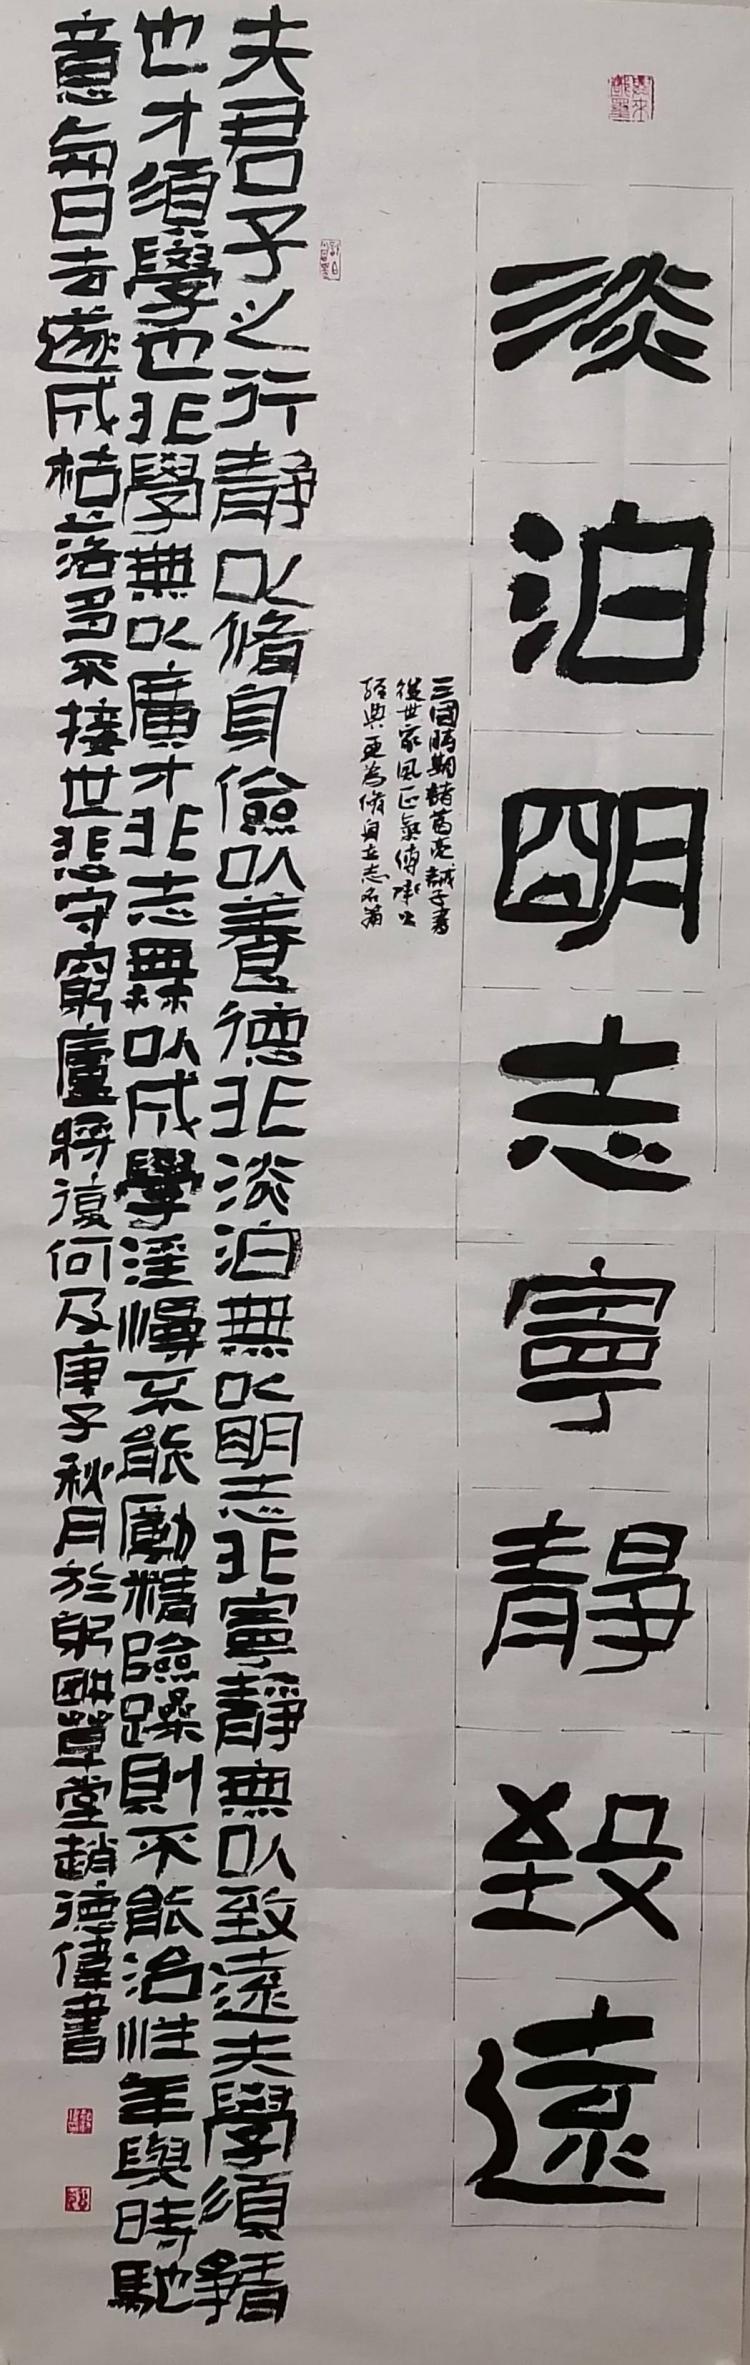 淡泊明志寧靜致遠
三國時期諸葛亮誡子書
後世家風正氣傳承之
經典更為脩身立志名篇
夫君子之行靜以脩身儉以養德非淡泊無以明志非寧靜無以致遠夫學須靜
也才須學也非學無以廣才非志無以成學淫慢不能勵精險躁則不能治性年與時馳
意每日去遂成枯落多不接世悲守窮廬將復何及庚子秋月於躬畊草堂趙德偉書